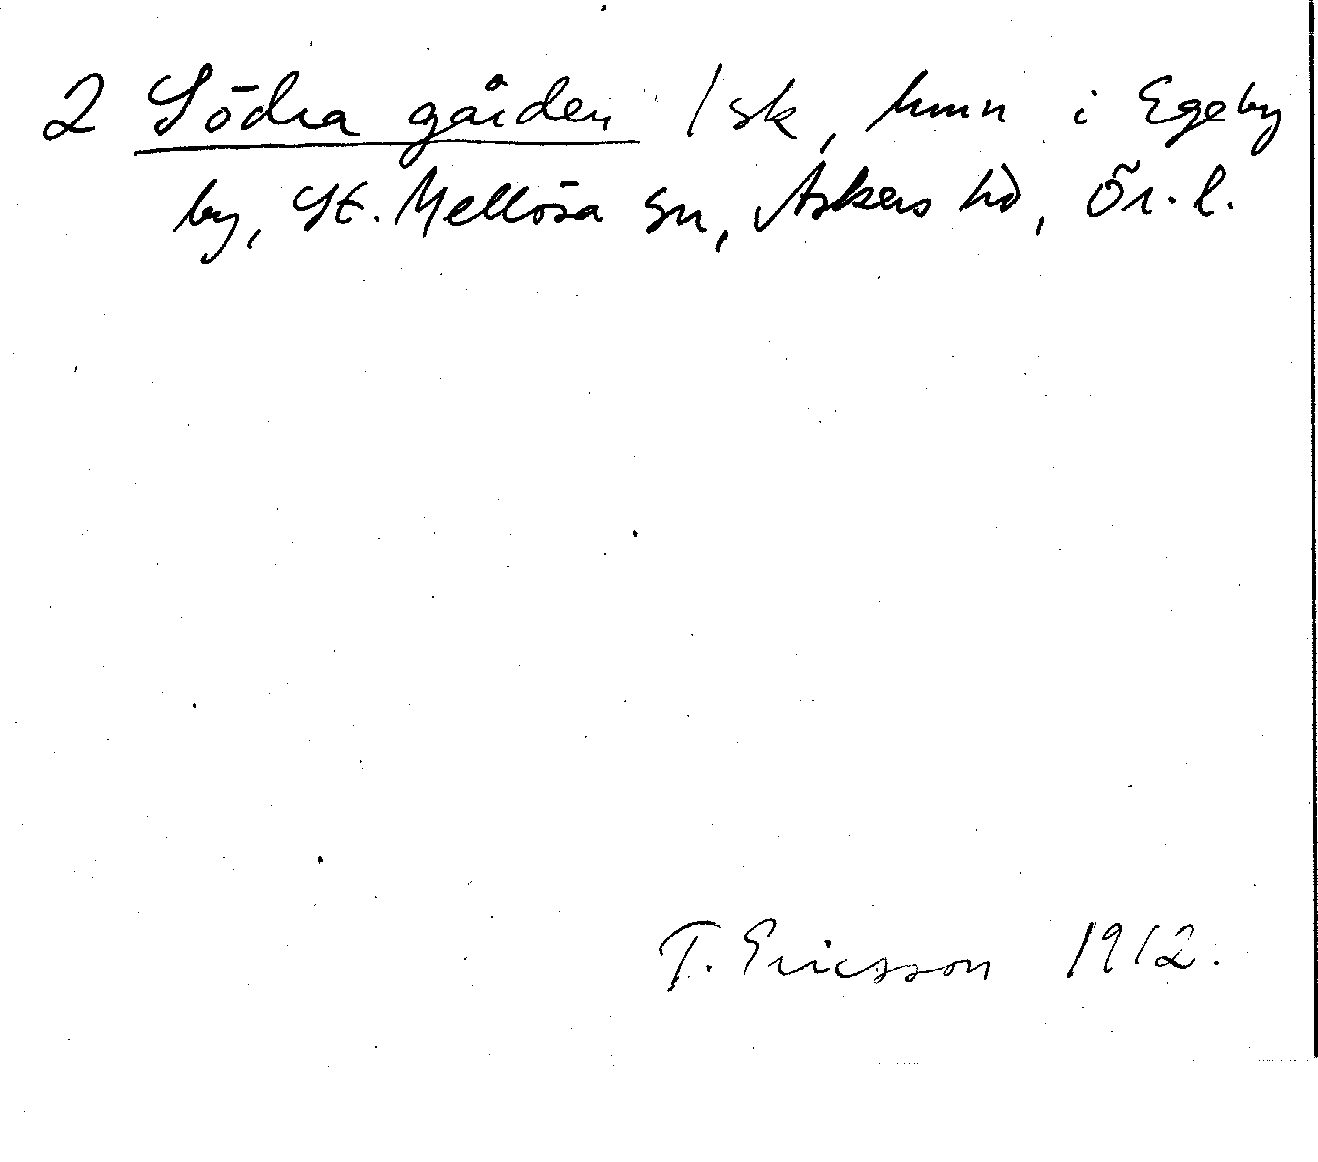 2 Södra gården 1 sk, hmn i Egeby
by, St. Mellösa sn, Askers hd, Ör. l.
T. Ericsson 1912.